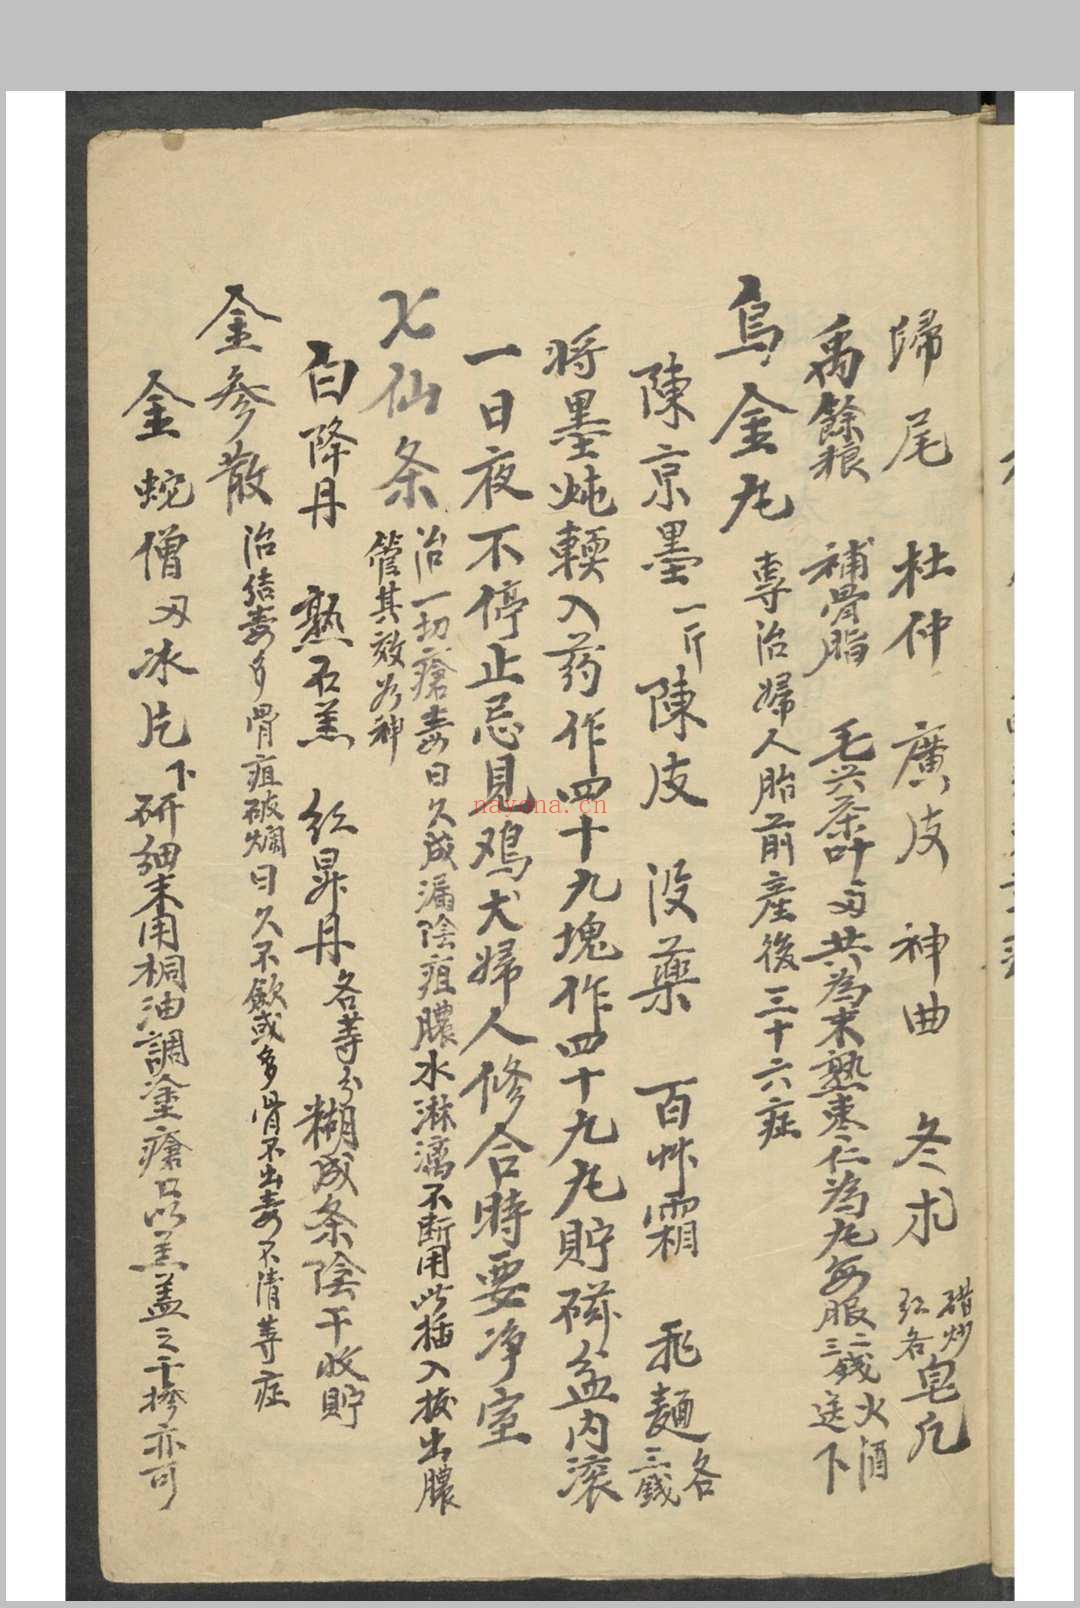 歸尾 杜仲 廣皮 神曲 冬朮 醋炒紅各 皂凡
禹餘粮 補骨脂 毛 茶叶 共為末熟枣仁為丸每服二三錢火酒送下
烏金丸 專治婦人胎前產後三十六症
陳京墨一斤 陳皮 没藥 百艸霜 飛麵各三錢
將墨炖輭入药作四十九塊作四十九丸貯磁盆内滚
一日夜不停止忌見鸡犬婦人修合時要净室
七仙条 治一切瘡毒日久成漏陰疽膿水淋漓不断用此插入拔出膿
管其效如神
白降丹 熟石羔 红昇丹各等分 糊成条陰干收貯
金参散 治结毒多骨疽破爛日久不歛或多骨不出毒不清等症
金蛇僧 冰片下研細末用桐油調塗瘡口以羔盖之干掺亦可
nayona.cn